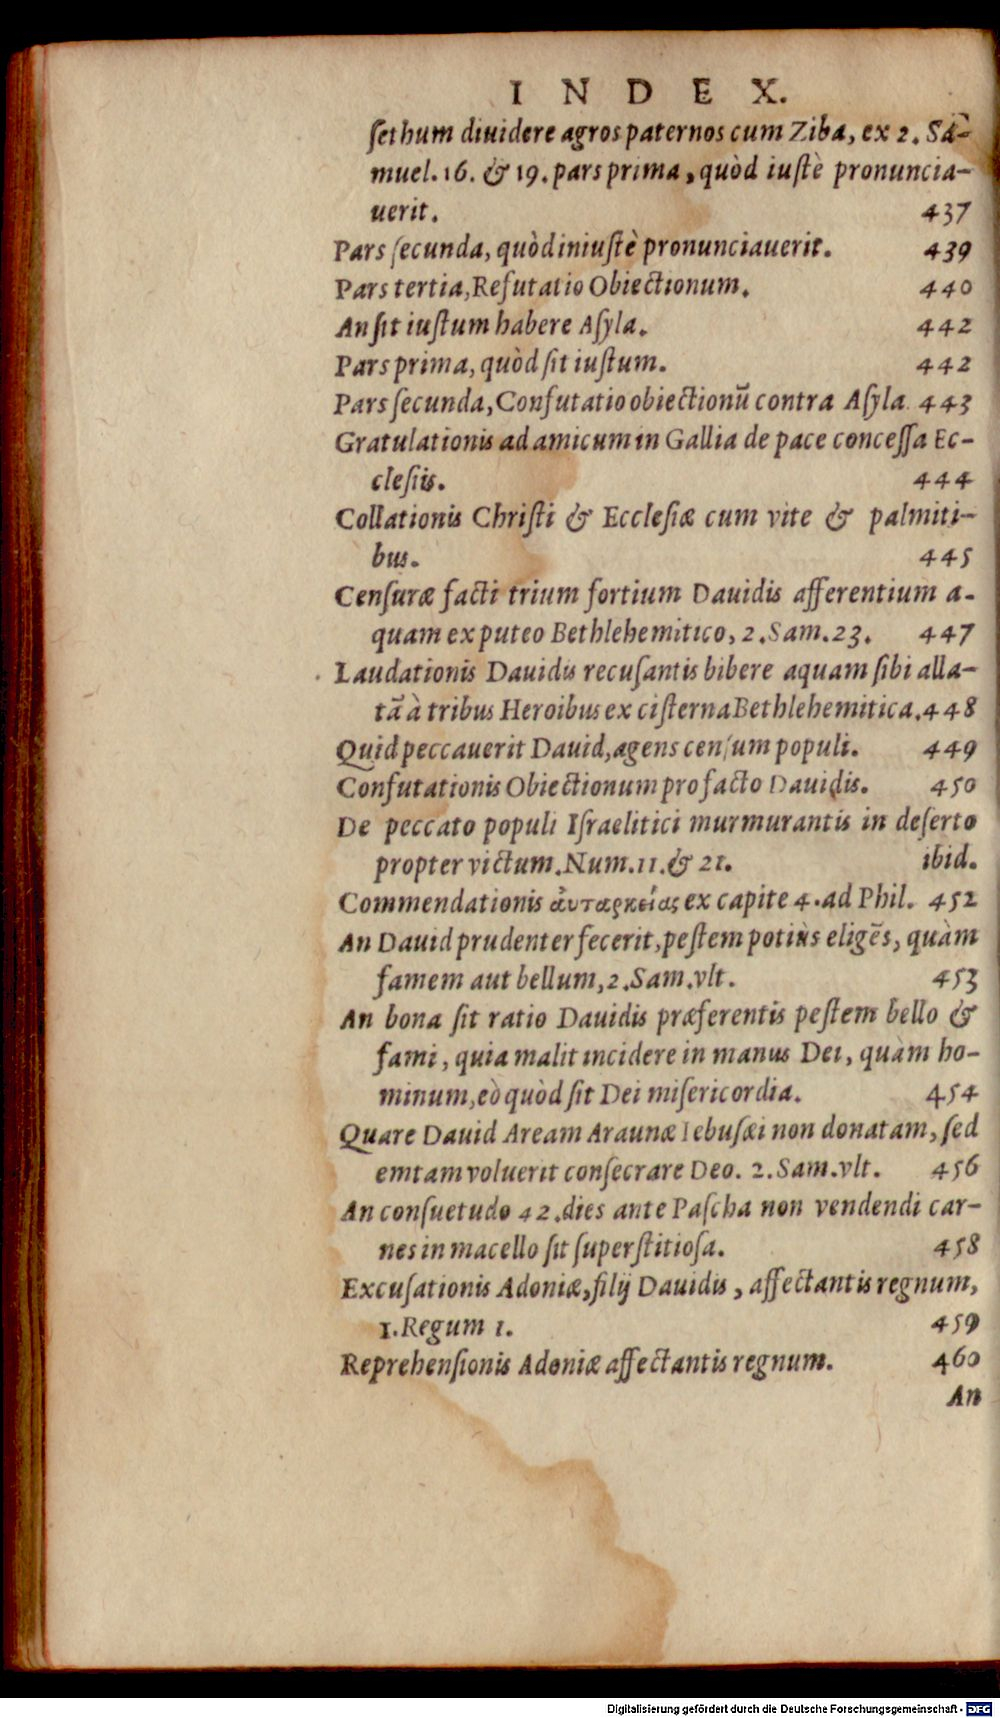 INDEX.
ſethum diuidere agros paternos cum Ziba, ex 2. Sa-
muel. 16. & 19. pars prima, quòd iuſtè pronuncia-
uerit. 437
Pars ſecunda, quòd iniuſtè pronunciauerit. 439
Pars tertia, Refutatio Obiectionum. 440
An ſit iuſtum habere Aſyla. 442
Pars prima, quòd ſit iuſtum. 442
Pars ſecunda, Confutatio obiectionū contra Aſyla. 443
Gratulationis ad amicum in Gallia de pace conceſſa Ec-
cleſiis. 444
Collationis Chriſti & Eccleſiæ cum vite & palmiti-
bus. 445
Cenſuræ facti trium fortium Dauidis afferentium a-
quam ex puteo Bethlehemitico, 2. Sam. 23. 447
Laudationis Dauidis recuſantis bibere aquam ſibi alla-
tā à tribus Heroibus ex ciſterna Bethlehemitica. 448
Quid peccauerit Dauid, agens cenſum populi. 449
Confutationis Obiectionum pro facto Dauidis. 450
De peccato populi Iſraelitici murmurantis in deſerto
propter victum. Num. 11. & 21. ibid.
Commendationis ἀυταρκείας ex capite 4. ad Phil. 452
An Dauid prudenter fecerit, peſtem potiùs eligēs, quàm
famem aut bellum, 2. Sam. vlt. 453
An bona ſit ratio Dauidis præferentis peſtem bello &
fami, quia malit incidere in manus Dei, quàm ho-
minum, eò quòd ſit Dei miſericordia. 454
Quare Dauid Aream Araunæ Iebuſæi non donatam, ſed
emtam voluerit conſecrare Deo. 2. Sam. vlt. 456
An conſuetudo 42. dies ante Paſcha non vendendi car-
nes in macello ſit ſuperſtitioſa. 458
Excuſationis Adoniæ, filij Dauidis, affectantis regnum,
1. Regum 1. 459
Reprehenſionis Adoniæ affectantis regnum. 460
An
Digitalisierung gefördert durch die Deutsche Forschungsgemeinschaft - DFG